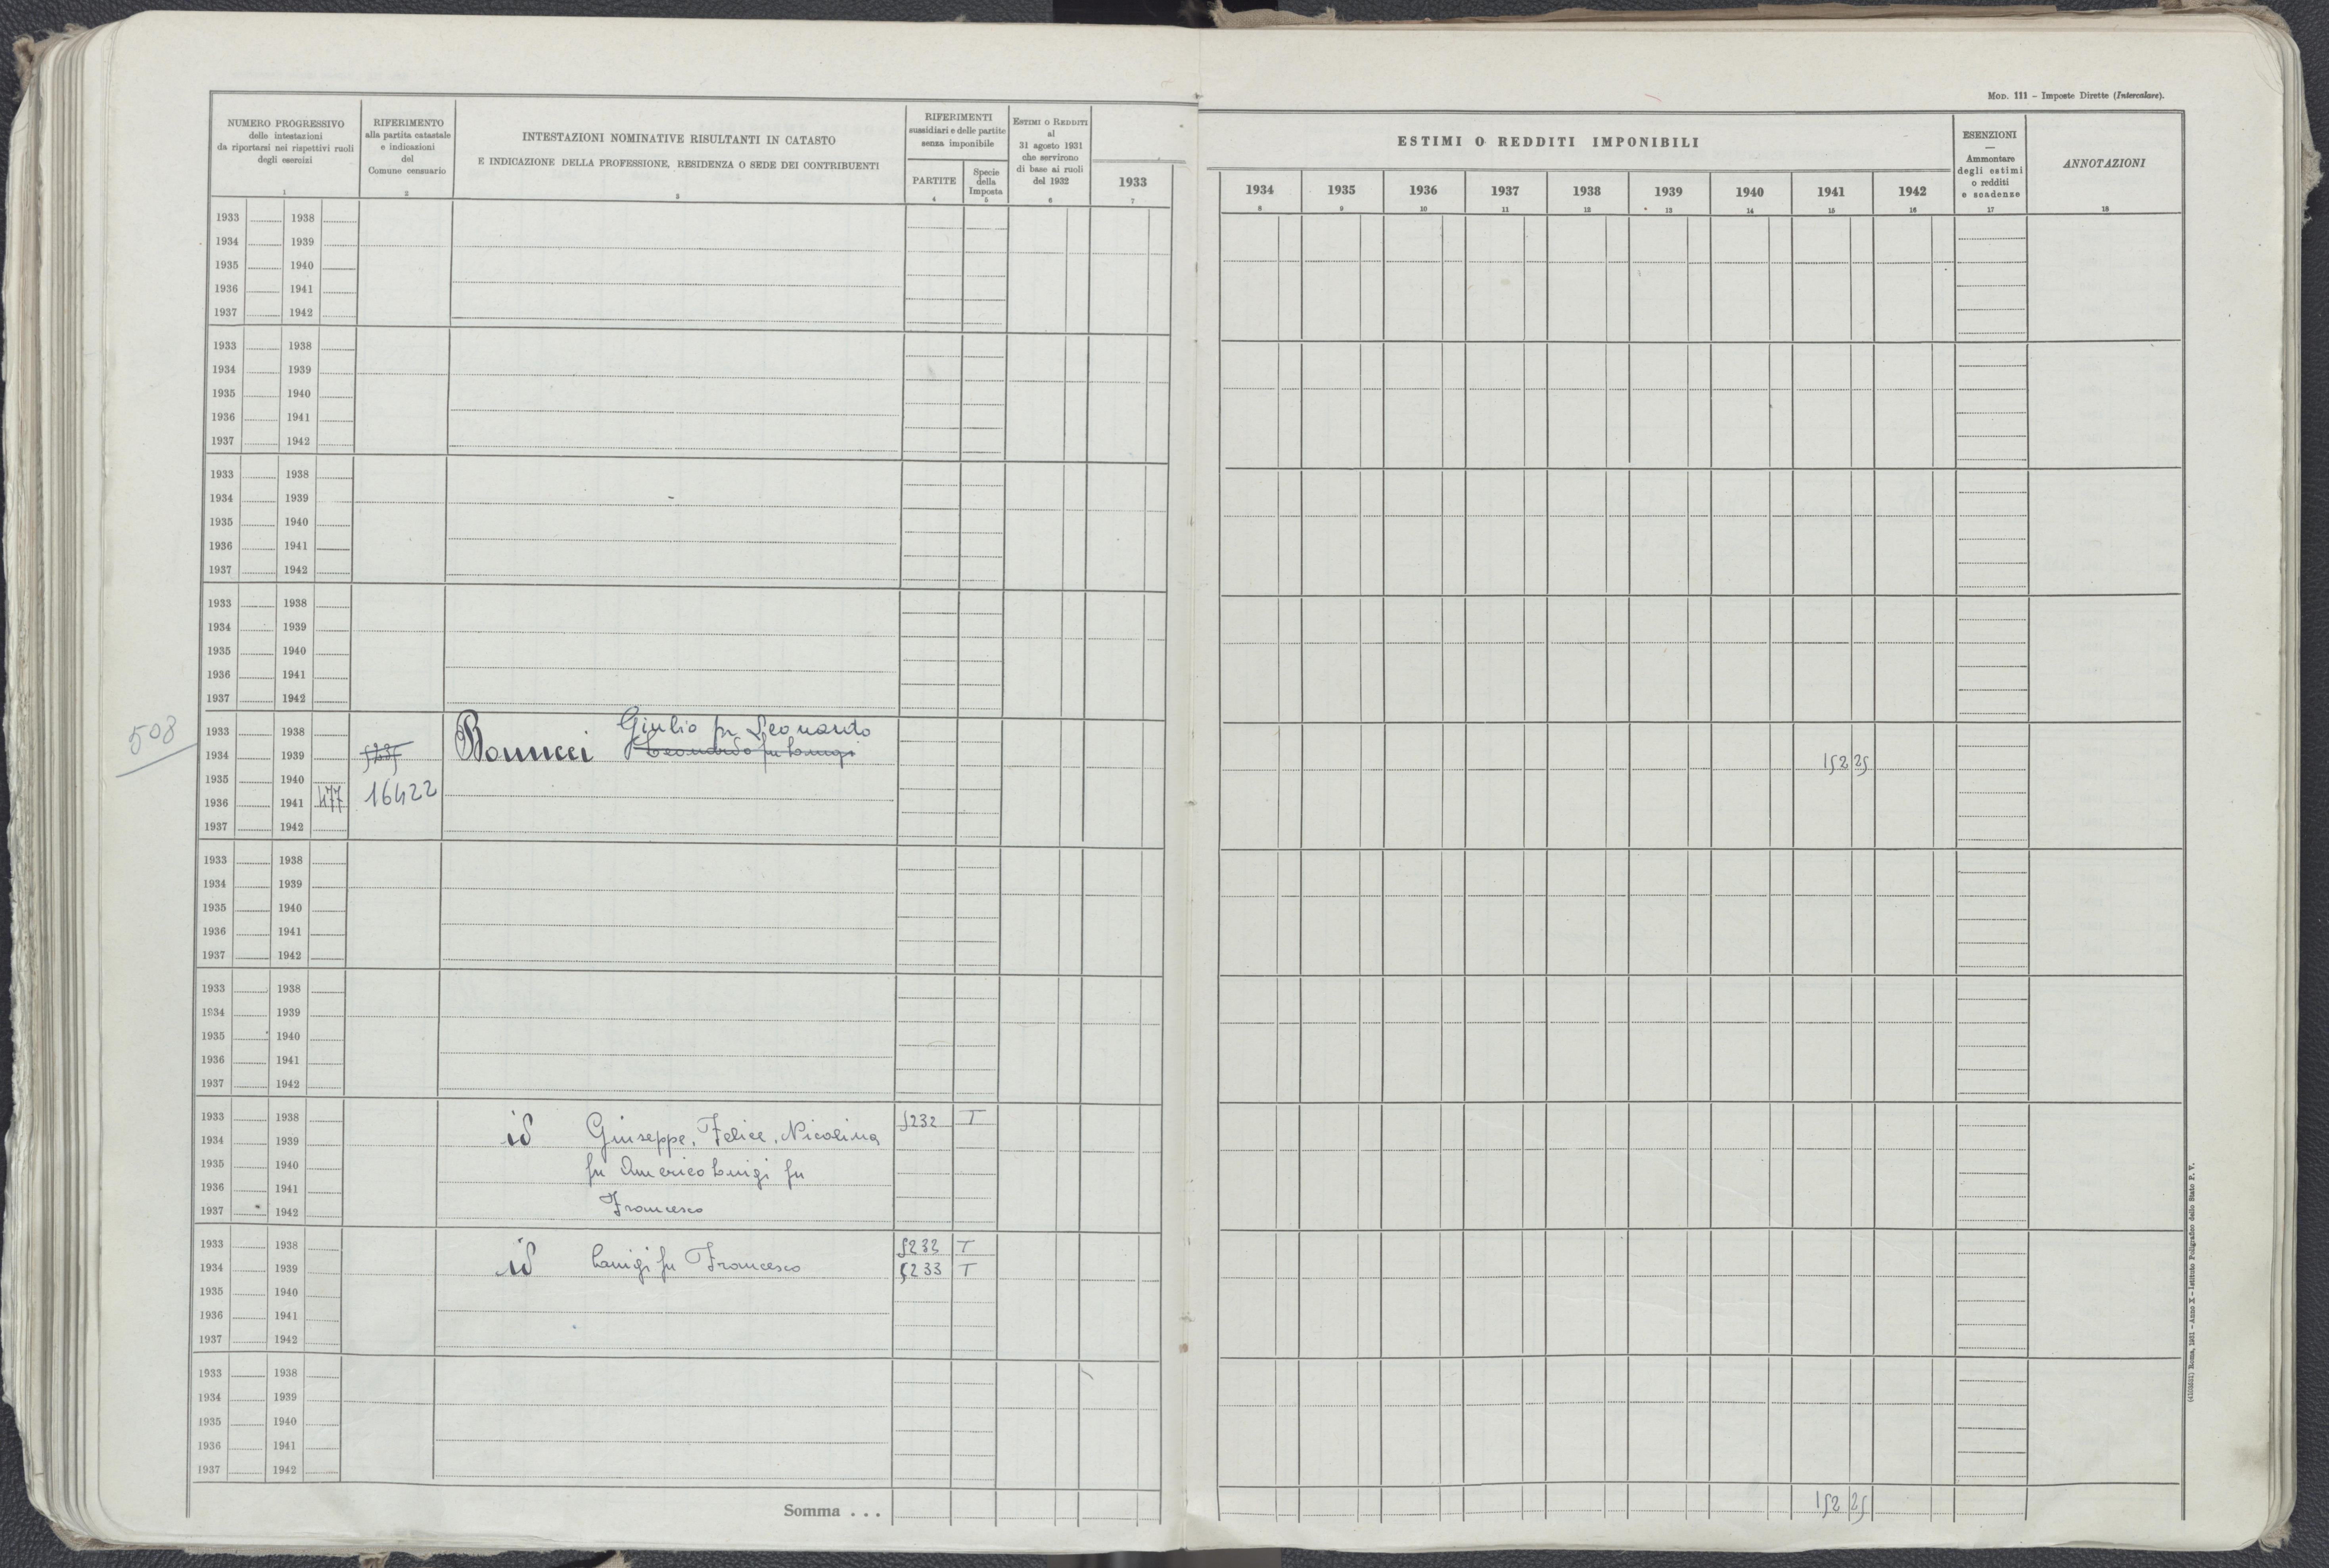 MOD. 111 – Imposte Dirette (Intercalare).
NUMERO PROGRESSIVO
delle intestazioni
da riportarsi nei rispettivi ruoli
degli esercizi
1
RIFERIMENTO
alla partita catastale
e indicazioni
del
Comune censuario
2
INTESTAZIONI NOMINATIVE RISULTANTI IN CATASTO
E INDICAZIONE DELLA PROFESSIONE, RESIDENZA O SEDE DEI CONTRIBUENTI
3
RIFERIMENTI
sussidiari e delle partite
senza imponibile
PARTITE
4
Specie
della
Imposta
5
ESTIMI O REDDITI
al
31 agosto 1931
che servirono
di base ai ruoli
del 1932
6
1933
7
ESTIMI O REDDITI IMPONIBILI
1934 1935 1936 1937 1938 1939 1940 1941 1942
8 9 10 11 12 13 14 15 16
ESENZIONI
—
Ammontare
degli estimi
o redditi
e scadenze
17
ANNOTAZIONI
18
1933 1938
1934 1939
1935 1940
1936 1941
1937 1942
1933 1938
1934 1939
1935 1940
1936 1941
1937 1942
1933 1938
1934 1939
1935 1940
1936 1941
1937 1942
1933 1938
1934 1939
1935 1940
1936 1941
1937 1942
508
1933 1938 Giulio fu Leonardo
1934 1939 5235 Bonucci Leonardo fu Luigi 152 25
1935 1940
1936 1941 477 16422
1937 1942
1933 1938
1934 1939
1935 1940
1936 1941
1937 1942
1933 1938
1934 1939
1935 1940
1936 1941
1937 1942
1933 1938 5232 T
1934 1939 id Giuseppe, Felice, Nicolina
1935 1940 fu Americo Luigi fu
1936 1941
1937 1942 Francesco
1933 1938 5232 T
1934 1939 id Luigi fu Francesco 5233 T
1935 1940
1936 1941
1937 1942
1933 1938
1934 1939
1935 1940
1936 1941
1937 1942
Somma . . . 152 25
(4103621) Roma, 1931 – Anno X – Istituto Poligrafico dello Stato P. V.